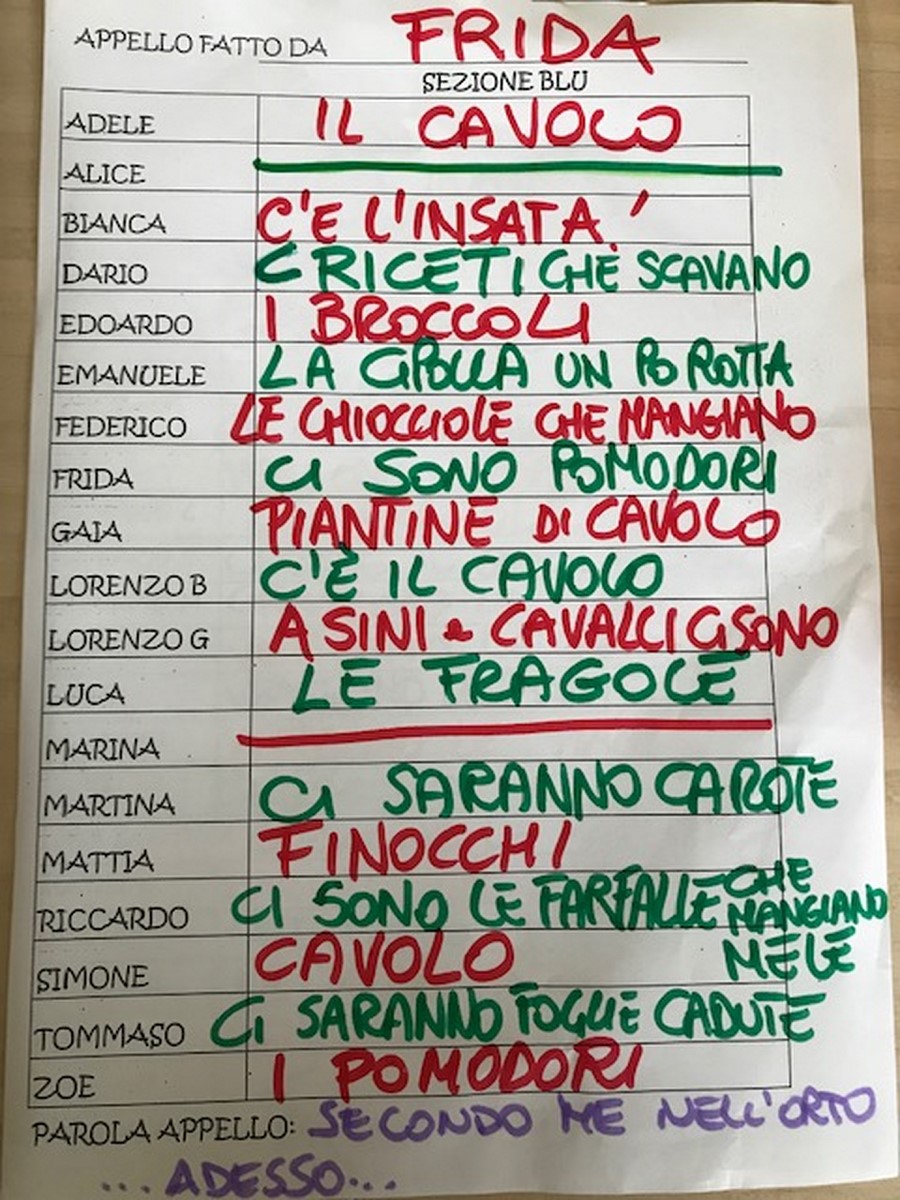 APPELLO FATTO DA FRIDA
SEZIONE BLU
ADELE IL CAVOLO
ALICE
BIANCA C'E L'INSATA.'
DARIO CRICETI CHE SCAVANO
EDOARDO I BROCCOLI
EMANUELE LA CIPOLLA UN PO ROTTA
FEDERICO LE CHIOCCIOLE CHE MANGIANO
FRIDA CI SONO POMODORI
GAIA PIANTINE DI CAVOLO
LORENZO B C'È IL CAVOLO
LORENZO G ASINI e CAVALLI CI SONO
LUCA LE FRAGOLE
MARINA
MARTINA CI SARANNO CAROTE
MATTIA FINOCCHI
RICCARDO CI SONO LE FARFALLE CHE
MANGIANO
MELE
SIMONE CAVOLO
TOMMASO CI SARANNO FOGLIE CADUTE
ZOE I POMODORI
PAROLA APPELLO: SECONDO ME NELL'ORTO
...ADESSO...